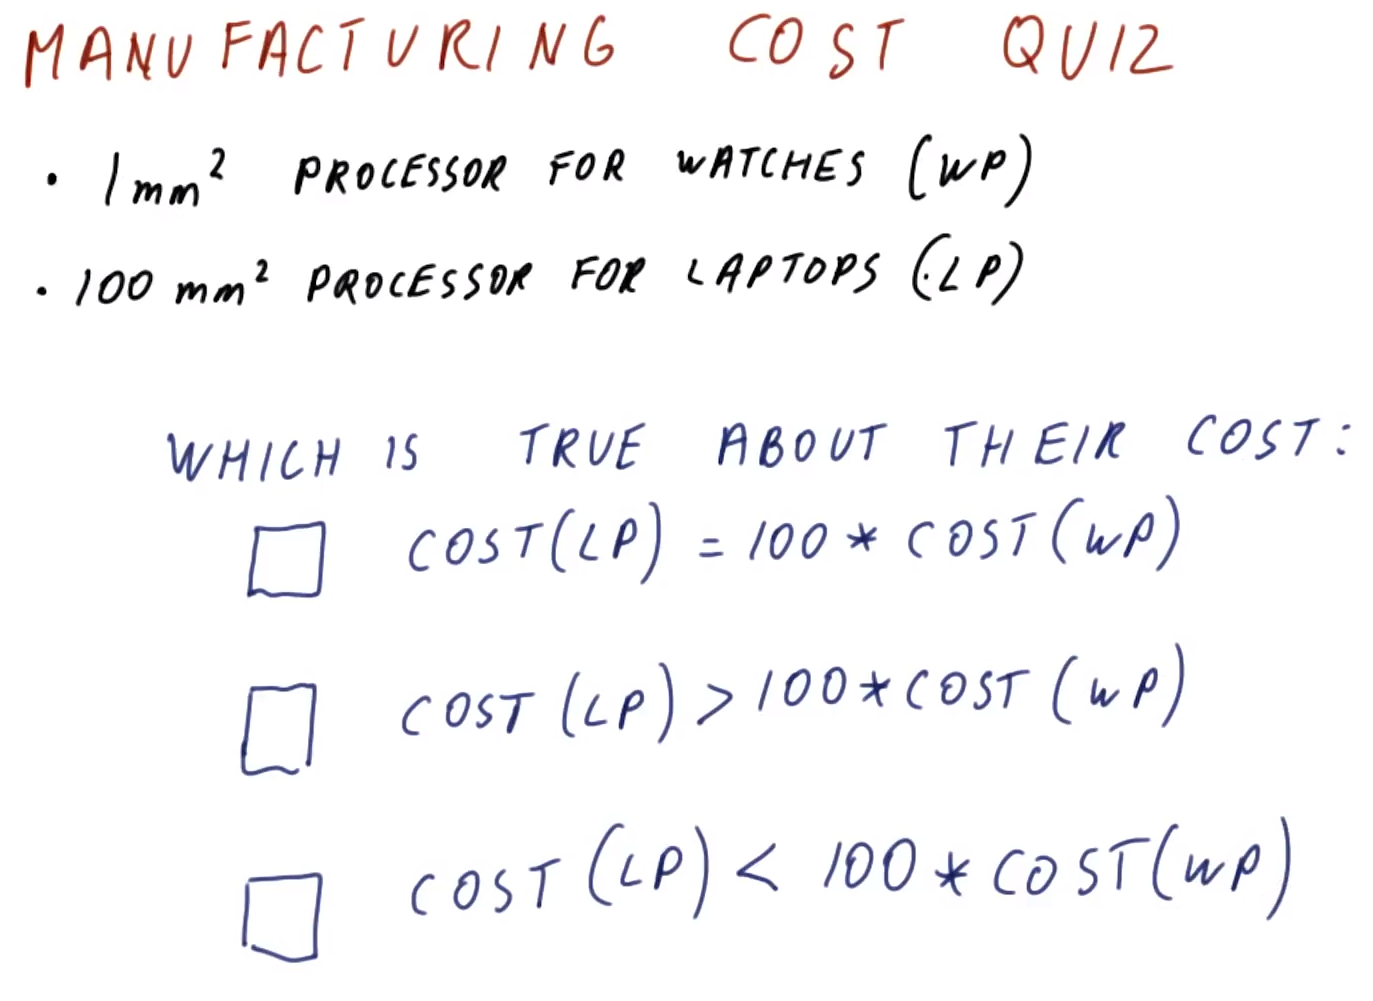 MANUFACTURING COST QUIZ
• 1mm² PROCESSOR FOR WATCHES (WP)
• 100 mm² PROCESSOR FOR LAPTOPS (LP)
WHICH IS TRUE ABOUT THEIR COST:
COST(LP) = 100 * COST(WP)
COST (LP) > 100 * COST (WP)
COST (LP) < 100 * COST(WP)